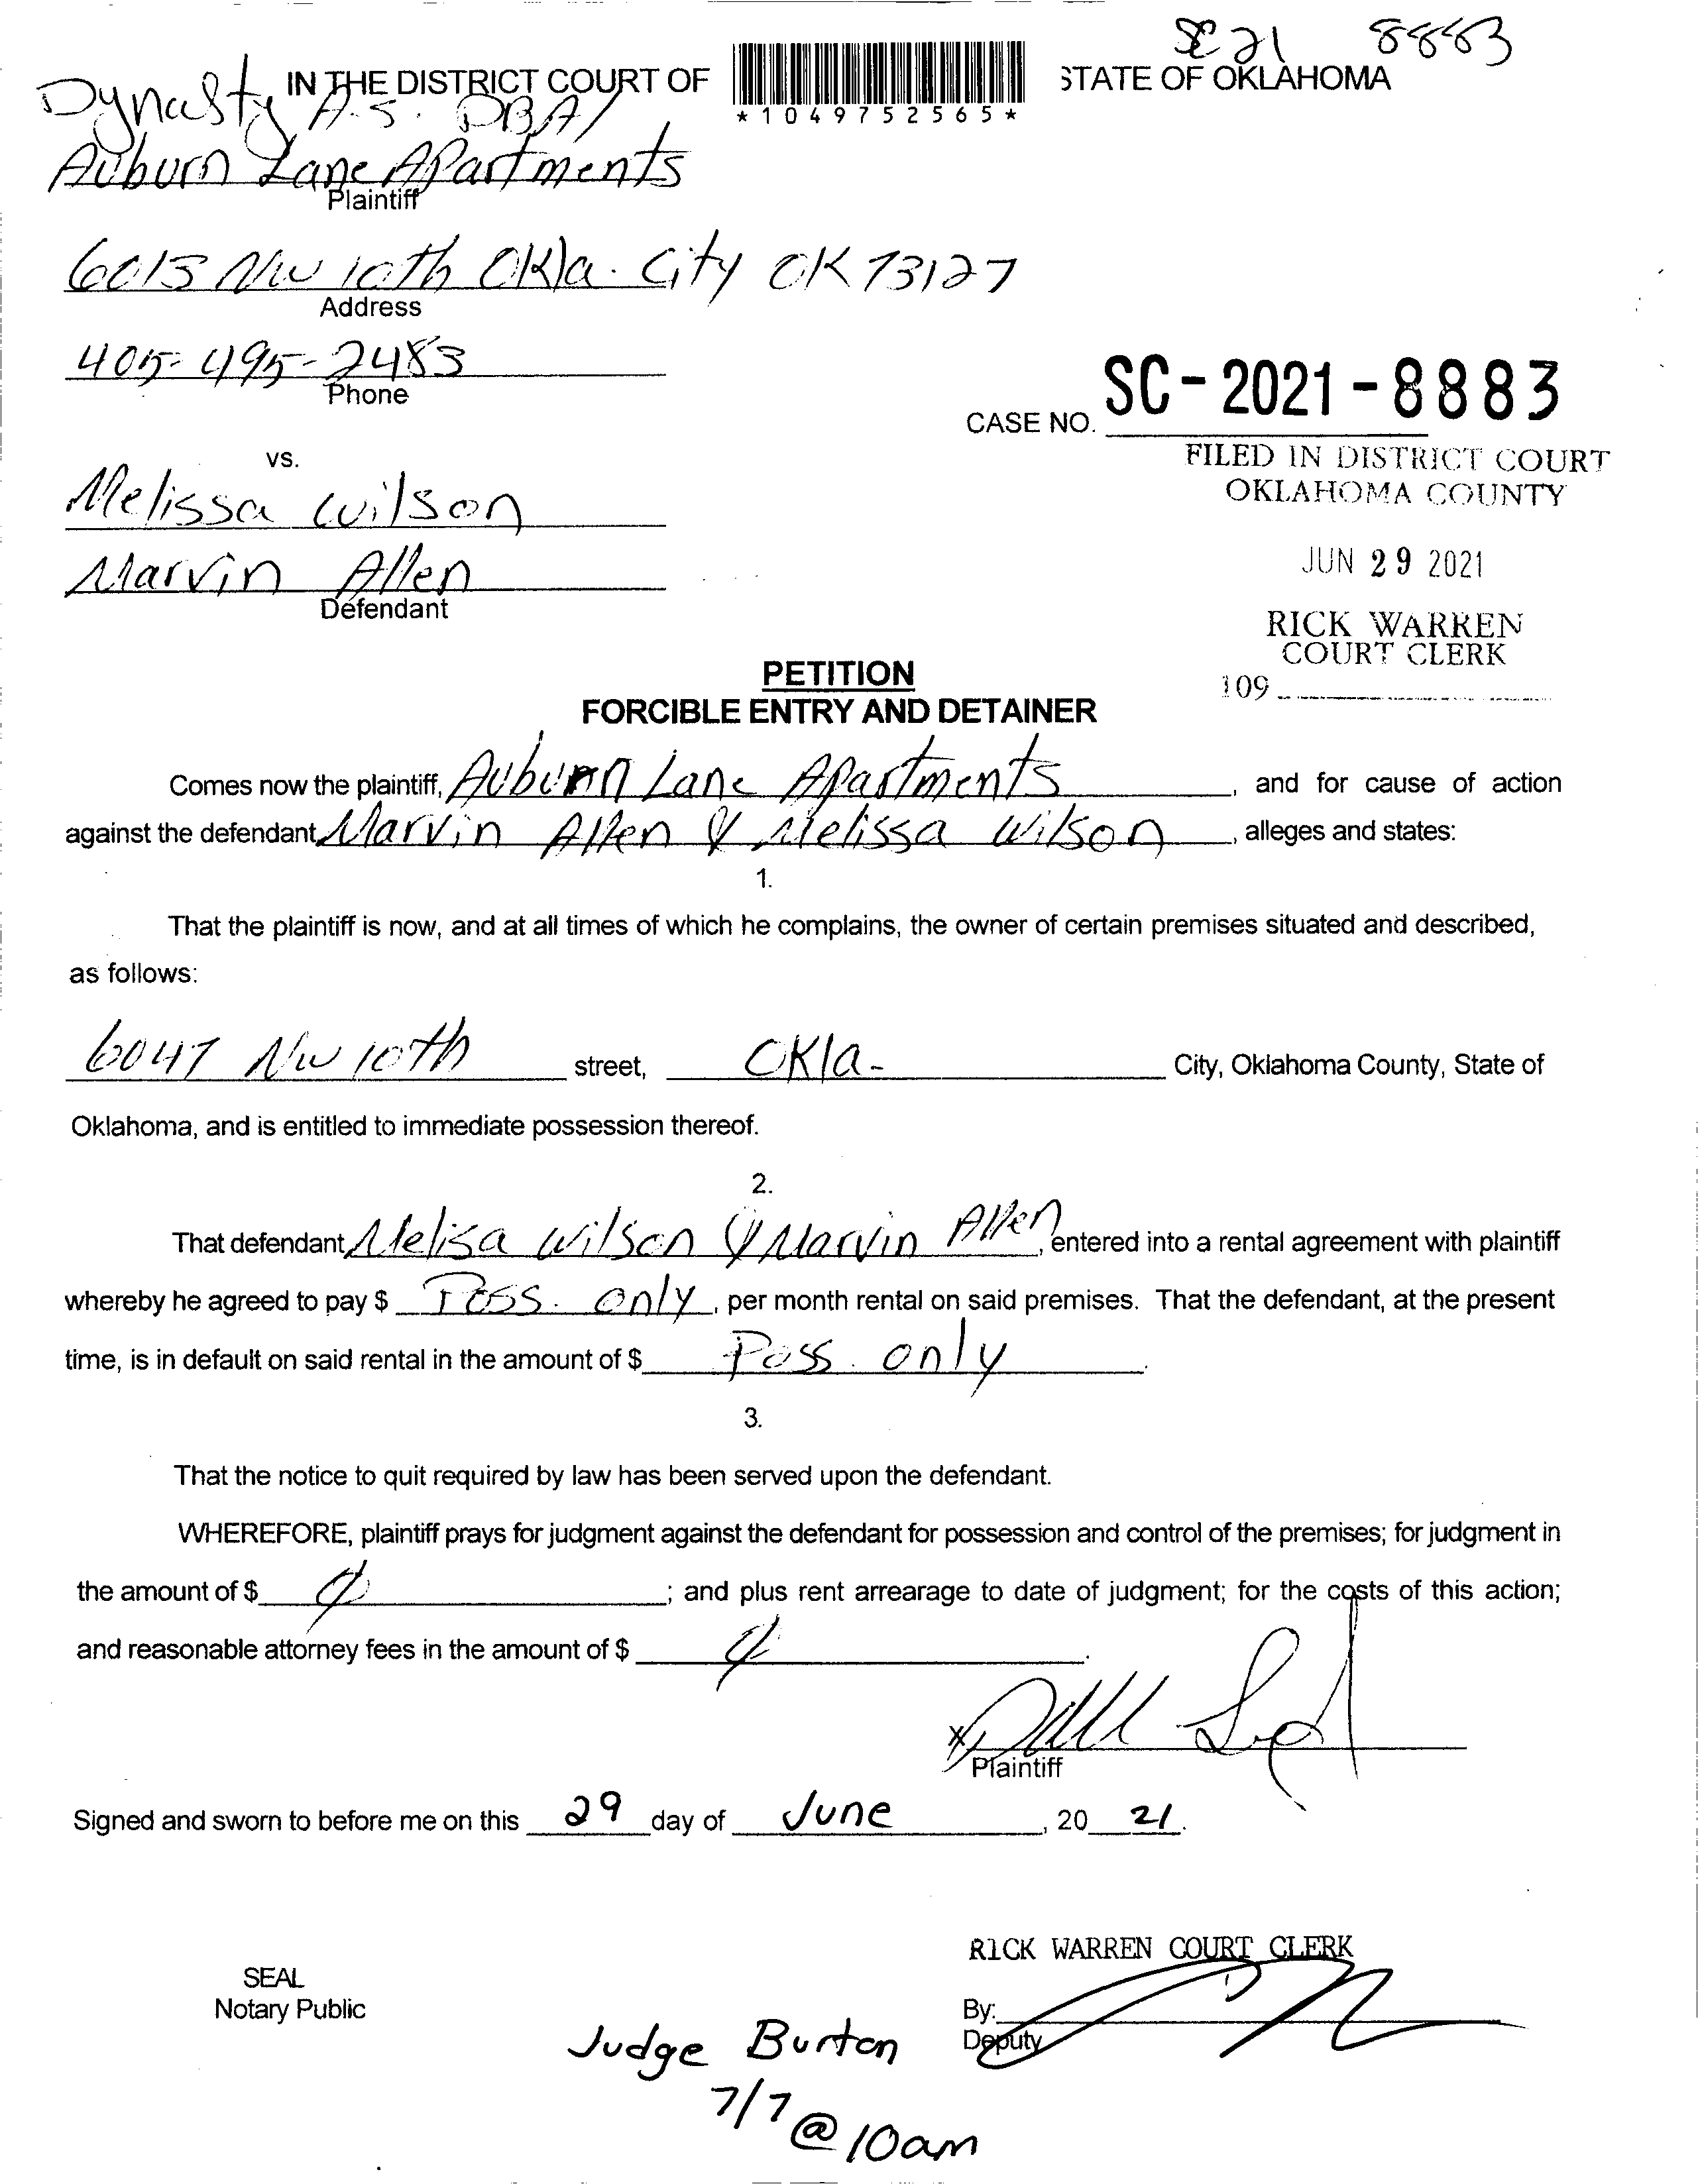 SC 21 8883
IN THE DISTRICT COURT OF STATE OF OKLAHOMA
*1049752565*
Dynasty A.S. DBA/
Auburn Lane Apartments
Plaintiff
6013 NW 10th Okla. City OK 73127
Address
405-495-2483
Phone
CASE NO. SC-2021-8883
FILED IN DISTRICT COURT
OKLAHOMA COUNTY
JUN 29 2021
RICK WARREN
COURT CLERK
109
vs.
Melissa Wilson
Marvin Allen
Defendant
PETITION
FORCIBLE ENTRY AND DETAINER
Comes now the plaintiff, Auburn Lane Apartments, and for cause of action
against the defendant, Marvin Allen & Melissa Wilson, alleges and states:
1.
That the plaintiff is now, and at all times of which he complains, the owner of certain premises situated and described,
as follows:
6047 NW 10th street, Okla- City, Oklahoma County, State of
Oklahoma, and is entitled to immediate possession thereof.
2.
That defendant Melisa Wilson & Marvin Allen, entered into a rental agreement with plaintiff
whereby he agreed to pay $ Poss. only, per month rental on said premises. That the defendant, at the present
time, is in default on said rental in the amount of $ Poss. only.
3.
That the notice to quit required by law has been served upon the defendant.
WHEREFORE, plaintiff prays for judgment against the defendant for possession and control of the premises; for judgment in
the amount of $ ∅; and plus rent arrearage to date of judgment; for the costs of this action;
and reasonable attorney fees in the amount of $ ∅.
X
Plaintiff
Signed and sworn to before me on this 29 day of June, 20 21.
RICK WARREN COURT CLERK
SEAL
Notary Public
By:
Deputy
Judge Burton
7/7 @ 10am